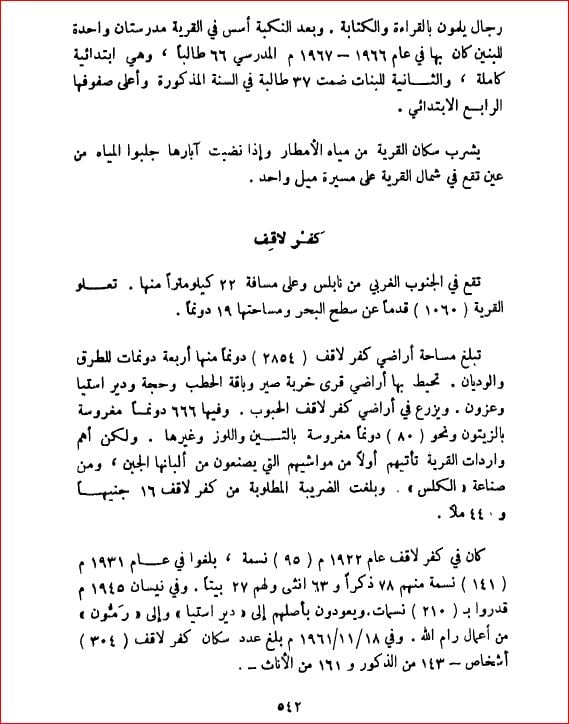 رجال يلمون بالقراءة والكتابة . وبعد النكبة أسس في القرية مدرستان واحدة
للبنين كان بها في عام ١٩٦٦ – ١٩٦٧ م المدرسي ٦٦ طالباً ، وهي ابتدائية
كاملة ، والثـــانية للبنات ضمت ٣٧ طالبة في السنة المذكورة وأعلى صفوفها
الرابع الابتدائي .
يشرب سكان القرية من مياه الأمطار وإذا نضبت آبارها جلبوا المياه من
عين تقع في شمال القرية على مسيرة ميل واحد .
كفر لاقِف
تقع في الجنوب الغربي من نابلس وعلى مسافة ٢٢ كيلومتراً منها . تعـــلو
القرية ( ١٠٦٠ ) قدماً عن سطح البحر ومساحتها ١٩ دونماً .
تبلغ مساحة أراضي كفر لاقف ( ٢٨٥٤ ) دونماً منها أربعة دونمات للطرق
والوديان . تحيط بها أراضي قرى خربة صير وباقة الحطب وحجة ودير استيا
وعزون . ويزرع في أراضي كفر لاقف الحبوب . وفيها ٦٦٦ دونمـــاً مغروسة
بالزيتون ونحو ( ٨٠ ) دونماً مغروسة بالتـــين واللوز وغيرها . ولكن أهم
واردات القرية تأتيهم أولاً من مواشيهم التي يصنعون من ألبانها الجبن ، ومن
صناعة « الكلس » . وبلغت الضريبة المطلوبة من كفر لاقف ١٦ جنيهـــاً
و ٤٤٠ ملاً .
كان في كفر لاقف عام ١٩٢٢ م ( ٩٥ ) نسمة ، بلغوا في عـــام ١٩٣١ م
( ١٤١ ) نسمة منهم ٧٨ ذكراً و ٦٣ انثى ولهم ٢٧ بيتاً . وفي نيسان ١٩٤٥ م
قدروا بـ ( ٢١٠ ) نسمات.ويعودون بأصلهم إلى « دير استيا » وإلى « رَمّون »
من أعمال رام الله . وفي ١٩٦١/١١/١٨ م بلغ عدد سكان كفر لاقف ( ٣٠٤ )
أشخاص – ١٤٣ من الذكور و ١٦١ من الأناث – .
٥٤٢